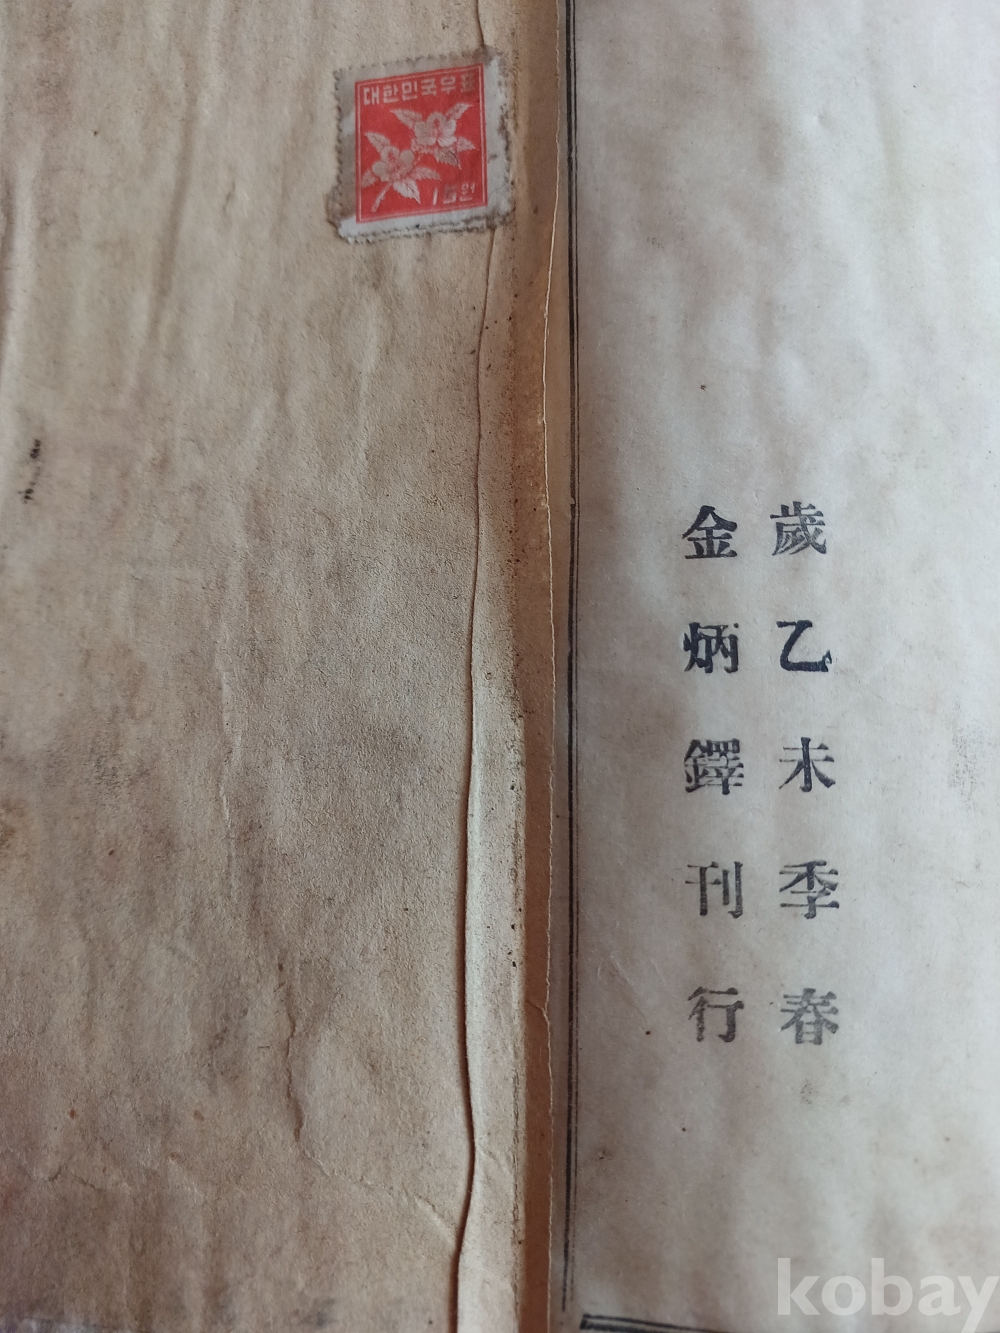 대한민국우표
15원
歲乙未季春
金炳鐸刊行
kobay